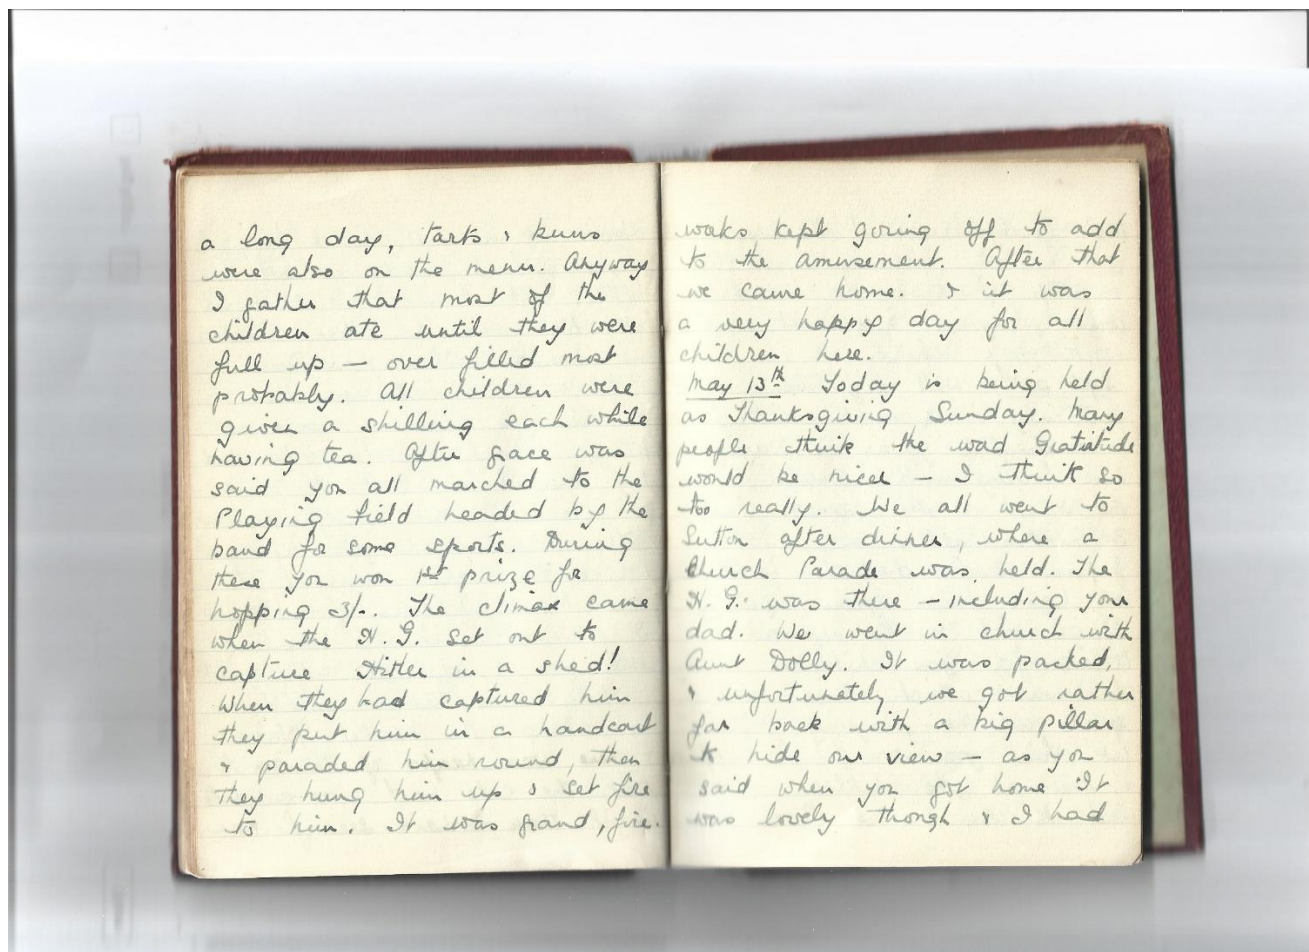 a long day, tarts & buns
were also on the menu. Anyway
I gather that most of the
children ate until they were
full up — over filled most
probably. All children were
given a shilling each while
having tea. After grace was
said you all marched to the
Playing field headed by the
band for some sports. During
these you won 1st prize for
hopping 3/-. The climax came
when the H. G. set out to
capture Hitler in a shed!
When they had captured him
they put him in a handcart
& paraded him round, then
they hung him up & set fire
to him. It was grand, fire-
works kept going off to add
to the amusement. After that
we came home. & it was
a very happy day for all
children here.
May 13th Today is being held
as Thanksgiving Sunday. Many
people think the word Gratitude
would be nicer — I think so
too really. We all went to
Sutton after dinner, where a
Church Parade was held. The
H. G. was there — including your
dad. We went in church with
Aunt Dolly. It was packed,
& unfortunately we got rather
far back with a big pillar
to hide our view — as you
said when you got home It
was lovely though & I had